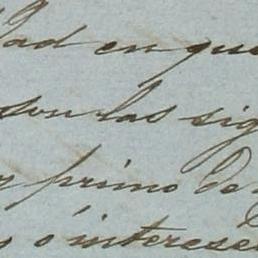 dad en que
son las sig
y primo de
o é intereses